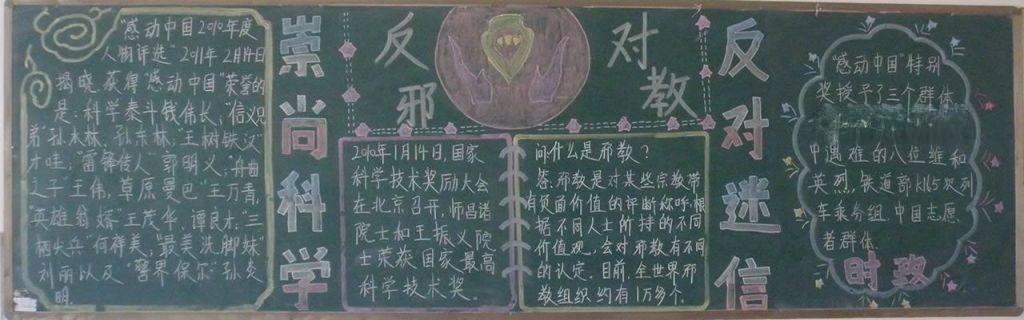 "感动中国2010年度
人物评选"2011年2月14日
揭晓获得"感动中国"荣誉的
是:科学泰斗钱伟长,"信义兄
弟"孙水林、孙东林,王树铁汉
才哇,"雷锋传人"郭明义,"舟曲
之子"王伟,草原曼巴"王万青,
"英雄翁婿"王茂华、谭良才,三
栖尖兵"何祥美,"最美洗脚妹"
刘丽以及"警界保尔"孙炎
明。
崇尚科学
反对
邪教
2010年1月14日,国家
科学技术奖励大会
在北京召开,师昌绪
院士和王振义院
士荣获国家最高
科学技术奖。
问什么是邪教?
答:邪教是对某些宗教带
有负面价值的评断称呼,根
据不同人士所持的不同
价值观,会对邪教有不同
的认定。目前,全世界邪
教组织约有1万多个.
反对迷信
"感动中国"特别
奖授予了三个群体
中遇难的八位维和
英烈,铁道部K165次列
车乘务组,中国志愿
者群体.
时政